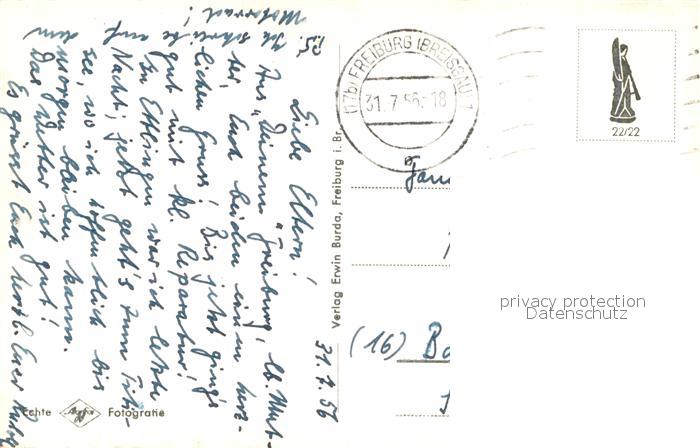 31.7.56
Liebe Eltern!
Aus "Deinem" Freiburg, lb. Mut-
ter, Euch beiden einen herz-
lichen Gruss! Bis jetzt ging's
gut mit kl. Reparatur!
In Ettlingen war ich letzte
Nacht; jetzt geht's zum Titi-
see, wo ich hoffentlich bis
morgen bleiben kann.
Das Wetter ist gut!
Es grüsst Euch herzl. Euer
P.S. Ich schreibe auf dem
Motorrad!
Echte Agfa Fotografie
Verlag Erwin Burda, Freiburg i. Br.
(17b) FREIBURG (BREISGAU) 1
31.7.56.-18
22/22
Fam
(16) Ba
privacy protection
Datenschutz